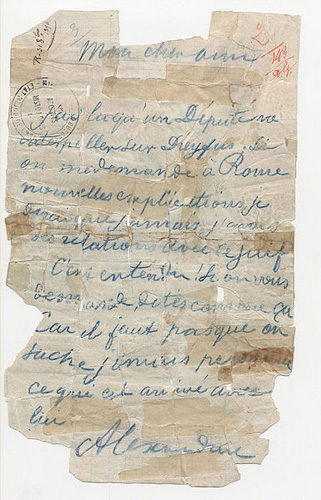 2
Mon cher ami
J'ai lu qu'un Député va
interpeller sur Dreyfus. Si
on me demande à Rome
nouvelles explications, je
dirai que jamais j'avais
des relations avec ce juif
C'est entendu. Si on vous
demande, dites comme ça
Car il faut pas que on
sache jamais personne
ce que est arrivé avec
lui
Alexandrine